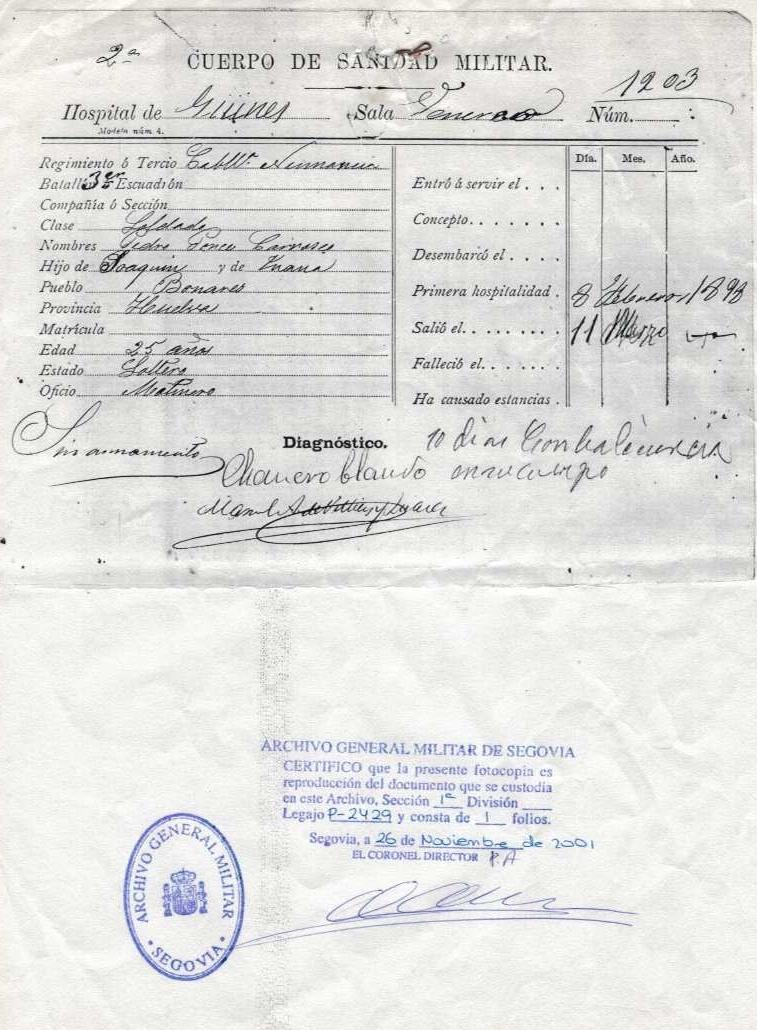 2ª
CUERPO DE SANIDAD MILITAR.
1203
Hospital de Güines Sala Venereo Núm.
Modelo núm. 4.
Regimiento ó Tercio Cabllª. Numancia
Batallón 3er Escuadrón
Compañía ó Sección
Clase Soldado
Nombres Pedro Ponce Carrasco
Hijo de Joaquin y de Juana
Pueblo Bonares
Provincia Huelva
Matrícula
Edad 25 años
Estado Soltero
Oficio Molinero
Día. Mes. Año.
Entró á servir el . . .
Concepto. . . . . . .
Desembarcó el . . . .
Primera hospitalidad . 8 Febrero 1898
Salió el. . . . . . . . 11 Marzo
Falleció el. . . . . . .
Ha causado estancias .
Sin armamento
Diagnóstico. 10 dias Combalecencia
Chancro blando en su cuerpo
Manuel
ARCHIVO GENERAL MILITAR DE SEGOVIA
CERTIFICO que la presente fotocopia es
reproducción del documento que se custodia
en este Archivo, Sección 1ª División
Legajo P-2429 y consta de 1 folios.
Segovia, a 26 de Noviembre de 2001
EL CORONEL DIRECTOR P.A
ARCHIVO GENERAL MILITAR
• SEGOVIA •